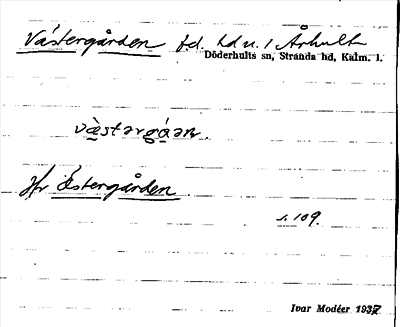 Västergården fd. hd u. 1 Århult
Döderhults sn, Stranda hd, Kalm. l.
vàstərgáən.
Jfr Östergården
s. 109.
Ivar Modéer 1937